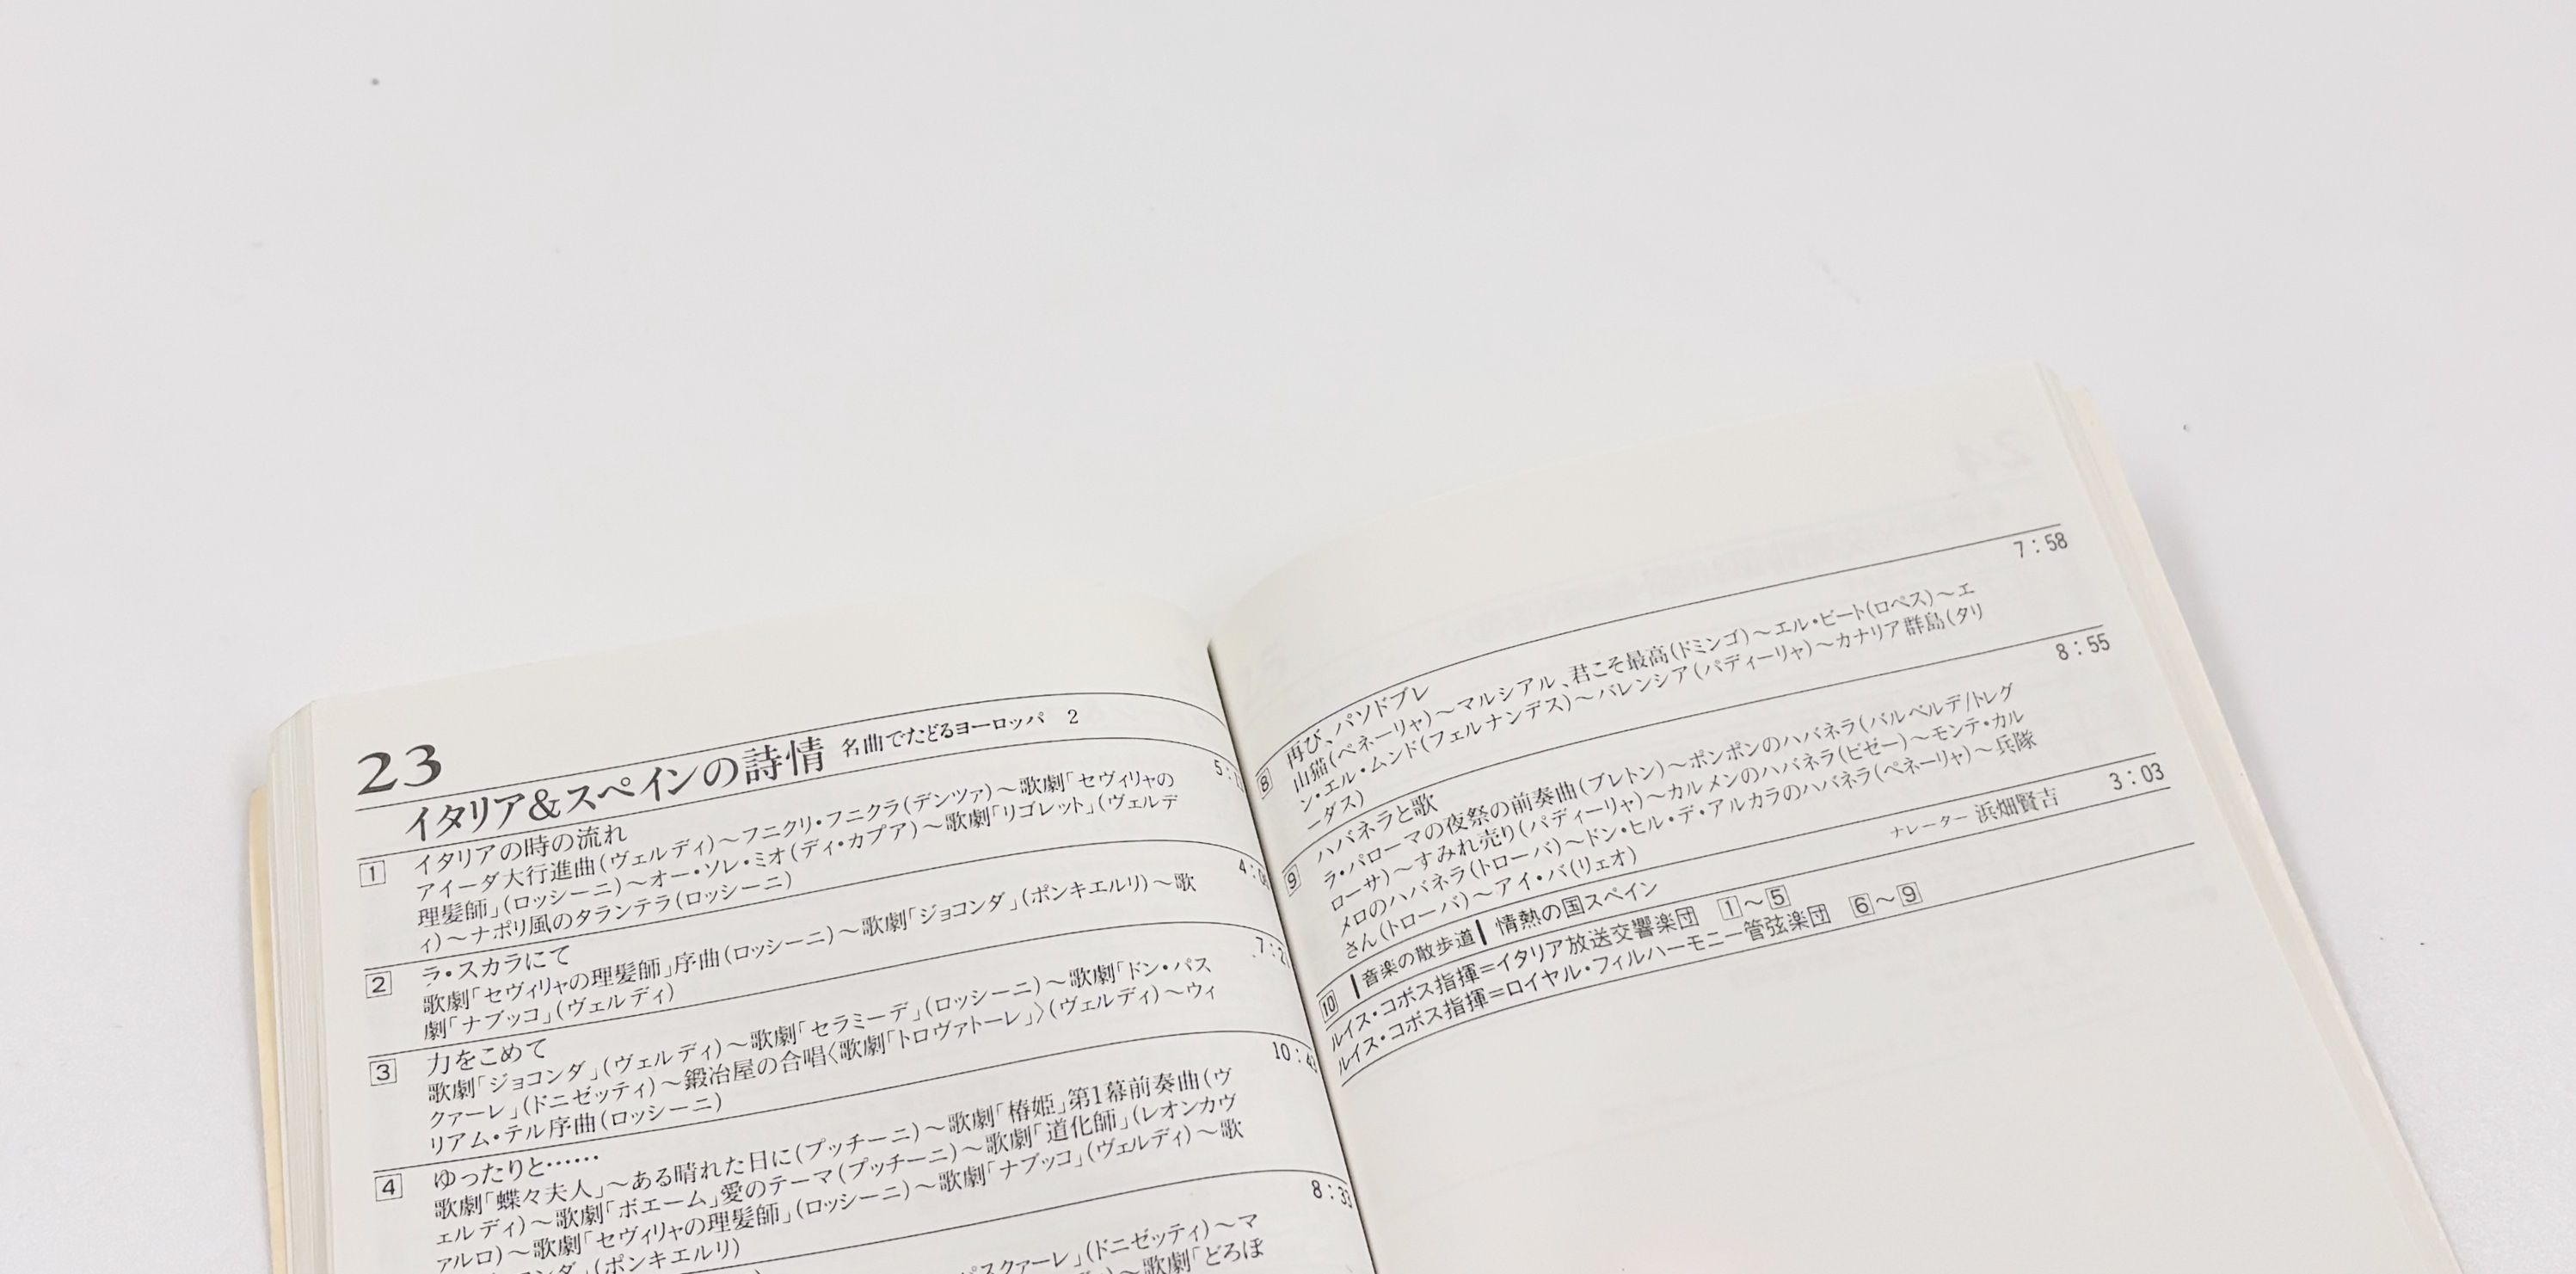 23
イタリア&スペインの詩情 名曲でたどるヨーロッパ 2
1 イタリアの時の流れ
アイーダ大行進曲(ヴェルディ)～フニクリ・フニクラ(デンツァ)～歌劇「セヴィリャの
理髪師」(ロッシーニ)～オー・ソレ・ミオ(ディ・カプア)～歌劇「リゴレット」(ヴェルデ
ィ)～ナポリ風のタランテラ(ロッシーニ)
2 ラ・スカラにて
歌劇「セヴィリャの理髪師」序曲(ロッシーニ)～歌劇「ジョコンダ」(ポンキエルリ)～歌
劇「ナブッコ」(ヴェルディ)
3 力をこめて
歌劇「ジョコンダ」(ヴェルディ)～歌劇「セラミーデ」(ロッシーニ)～歌劇「ドン・パス
クァーレ」(ドニゼッティ)～鍛冶屋の合唱〈歌劇「トロヴァトーレ」〉(ヴェルディ)～ウィ
リアム・テル序曲(ロッシーニ)
4 ゆったりと……
歌劇「蝶々夫人」～ある晴れた日に(プッチーニ)～歌劇「椿姫」第1幕前奏曲(ヴ
ェルディ)～歌劇「ボエーム」愛のテーマ(プッチーニ)～歌劇「道化師」(レオンカヴ
ァルロ)～歌劇「セヴィリャの理髪師」(ロッシーニ)～歌劇「ナブッコ」(ヴェルディ)～歌
(ポンキエルリ)
(ドニゼッティ)～マ
～歌劇「どろぼ
8 再び、パソドブレ 7:58
山猫(ペネーリャ)～マルシアル、君こそ最高(ドミンゴ)～エル・ビート(ロペス)～エ
ン・エル・ムンド(フェルナンデス)～バレンシア(パディーリャ)～カナリア群島(タリ
ーダス)
9 ハバネラと歌 8:55
ラ・パローマの夜祭の前奏曲(ブレトン)～ポンポンのハバネラ(バルベルデ/トレグ
ローサ)～すみれ売り(パディーリャ)～カルメンのハバネラ(ビゼー)～モンテ・カル
メロのハバネラ(トローバ)～ドン・ヒル・デ・アルカラのハバネラ(ペネーリャ)～兵隊
さん(トローバ)～アイ・バ(リェオ)
10 音楽の散歩道 情熱の国スペイン ナレーター 浜畑賢吉 3:03
ルイス・コボス指揮=イタリア放送交響楽団 1～5
ルイス・コボス指揮=ロイヤル・フィルハーモニー管弦楽団 6～9